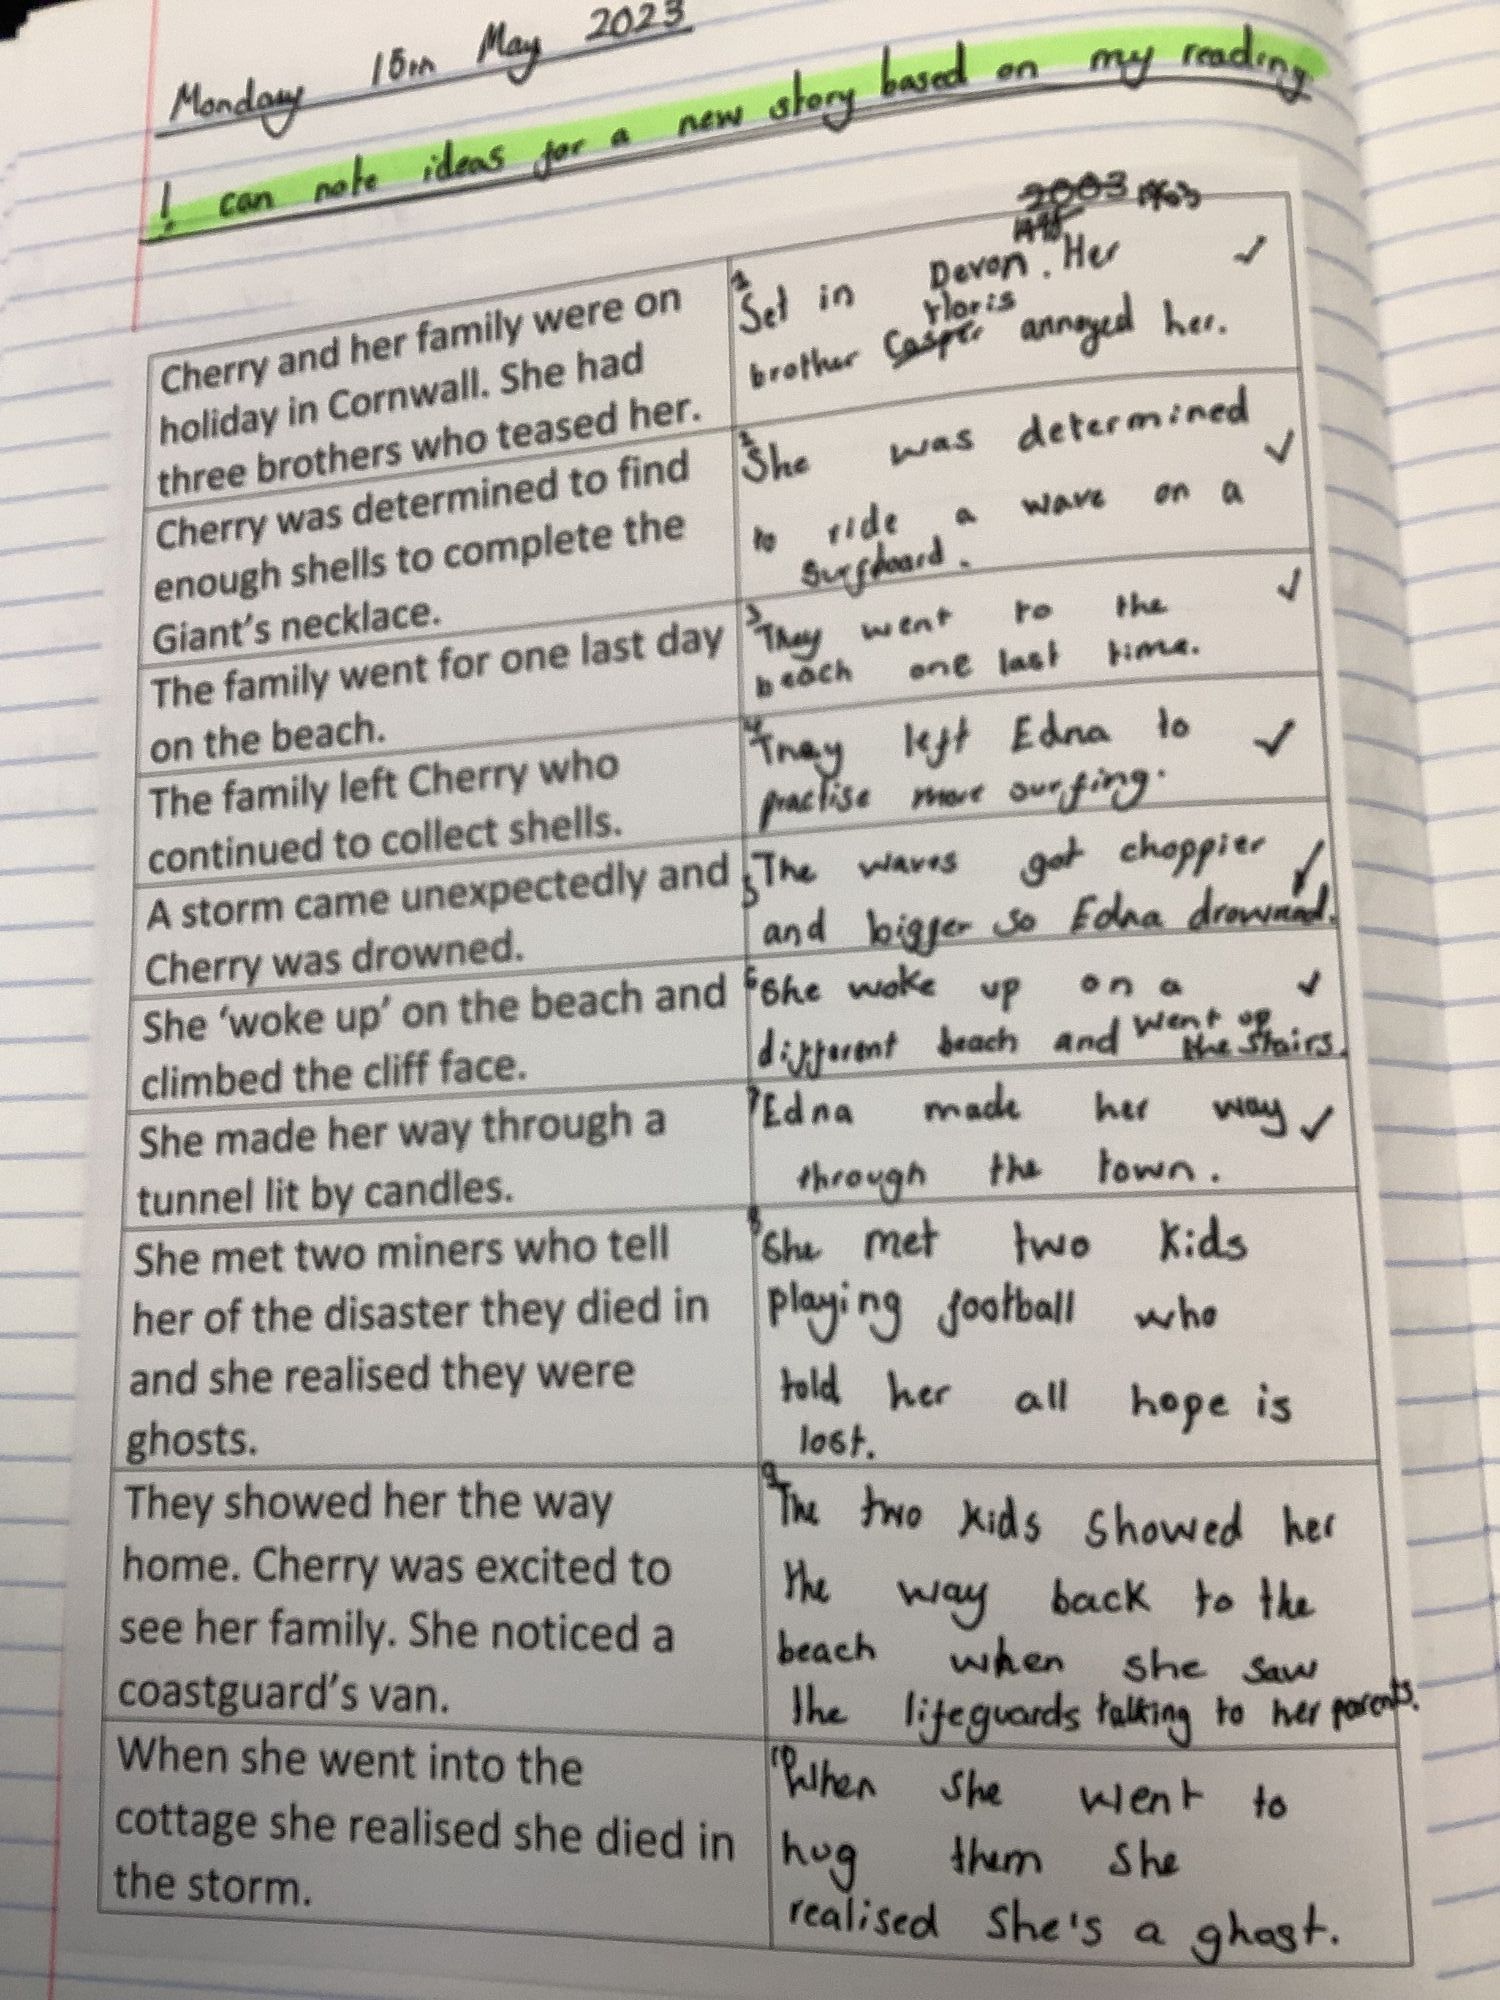 Monday 15th May 2023
I can note ideas for a new story based on my reading
Cherry and her family were on
holiday in Cornwall. She had
three brothers who teased her.
2003 1963
1 Set in Devon. Her
brother Casper annoyed her.
Cherry was determined to find
enough shells to complete the
Giant's necklace.
2 She was determined
to ride a wave on a
surfboard.
The family went for one last day
on the beach.
3 They went to the
beach one last time.
The family left Cherry who
continued to collect shells.
4 They left Edna to
practise more surfing.
A storm came unexpectedly and
Cherry was drowned.
5 The waves got choppier
and bigger so Edna drowned.
She 'woke up' on the beach and
climbed the cliff face.
6 She woke up on a
different beach and went up
the stairs.
She made her way through a
tunnel lit by candles.
7 Edna made her way
through the town.
She met two miners who tell
her of the disaster they died in
and she realised they were
ghosts.
8 She met two kids
playing football who
told her all hope is
lost.
They showed her the way
home. Cherry was excited to
see her family. She noticed a
coastguard's van.
9 The two kids showed her
the way back to the
beach when she saw
the lifeguards talking to her parents.
When she went into the
cottage she realised she died in
the storm.
10 When she went to
hug them she
realised she's a ghost.